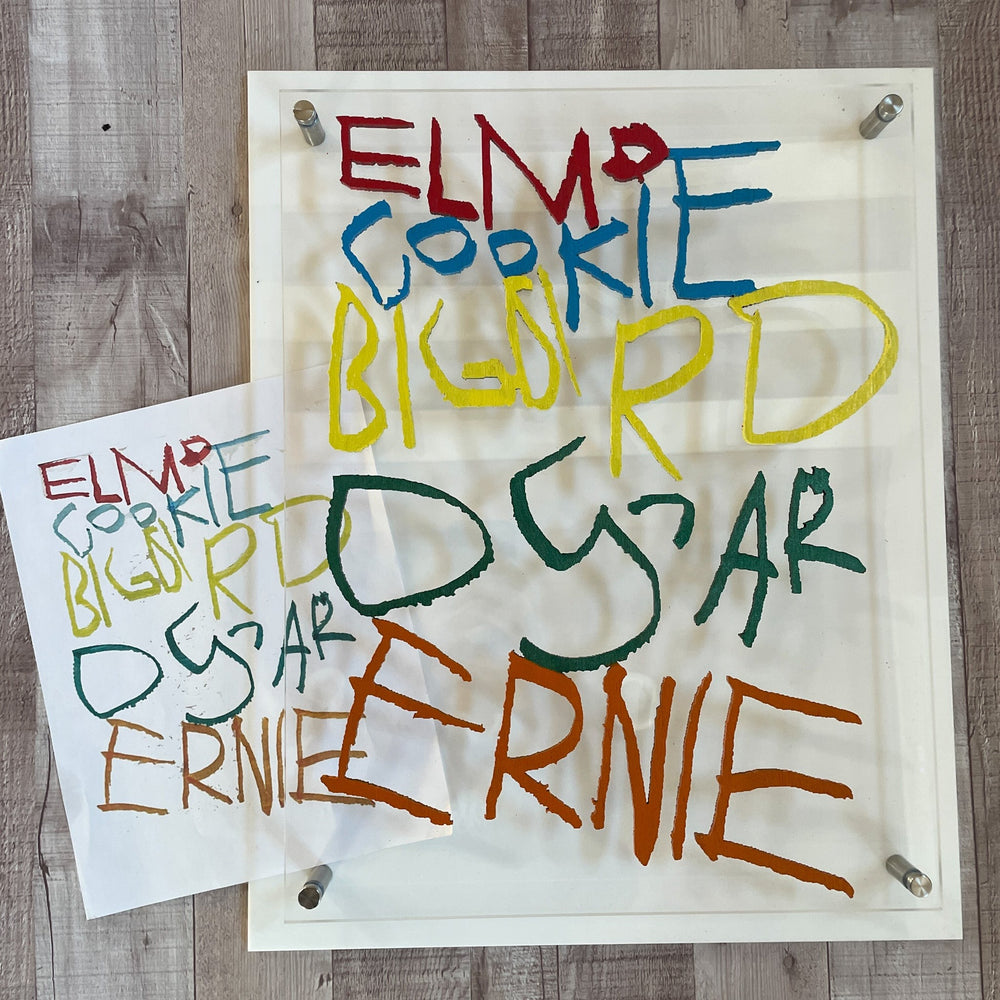 ELMO
COOKIE
BIG BIRD
OSCAR
ERNIE
ELMO
COOKIE
BIG BIRD
OSCAR
ERNIE